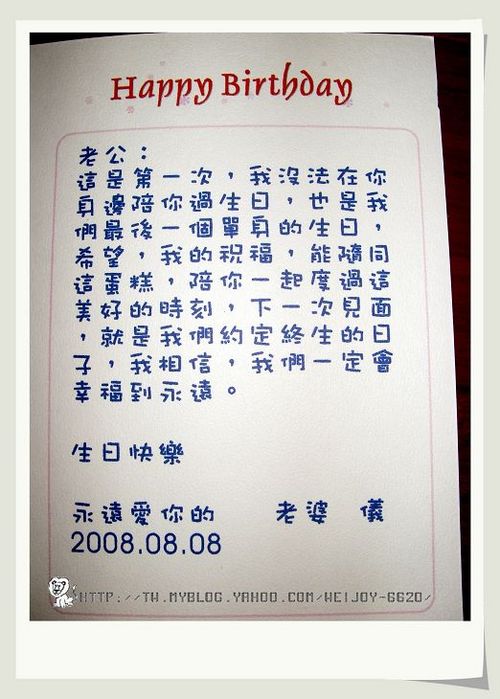 Happy Birthday
老公：
這是第一次，我沒法在你
身邊陪你過生日，也是我
們最後一個單身的生日，
希望，我的祝福，能隨同
這蛋糕，陪你一起度過這
美好的時刻，下一次見面
，就是我們約定終生的日
子，我相信，我們一定會
幸福到永遠。
生日快樂
永遠愛你的 老婆 儀
2008.08.08
HTTP://TW.MYBLOG.YAHOO.COM/WEIJOY-6620/